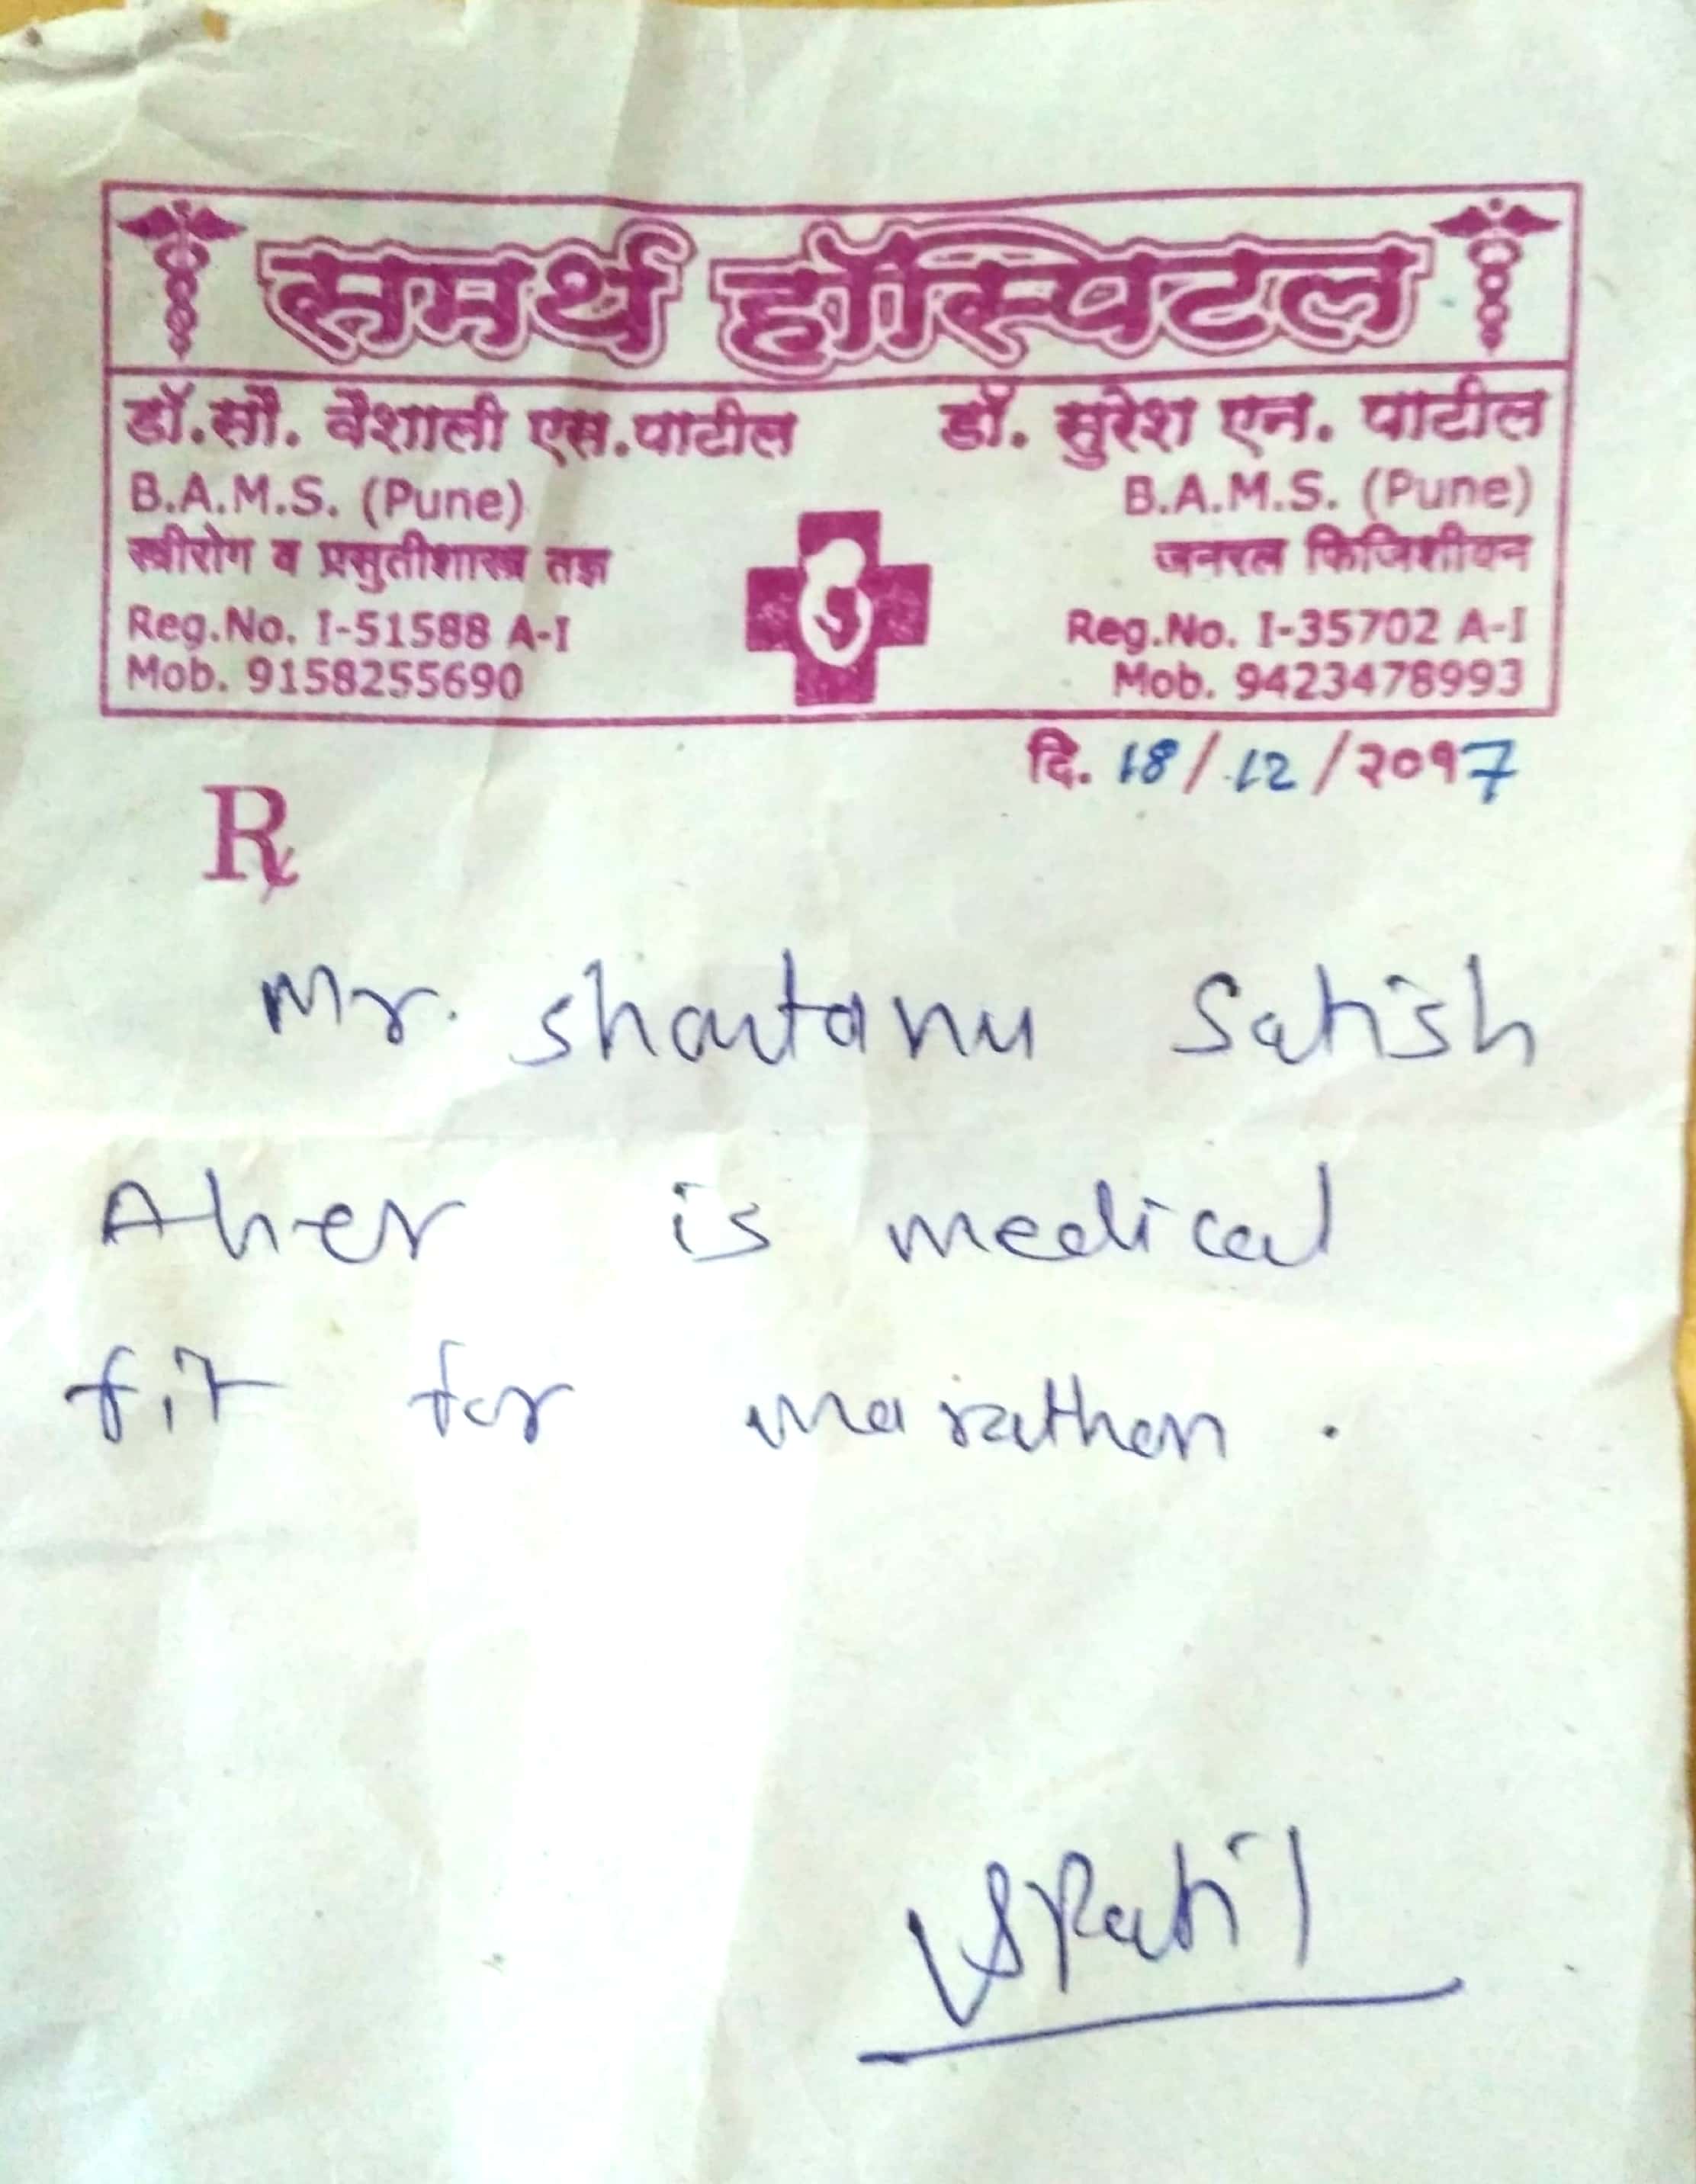 समर्थ हॉस्पिटल
डॉ.सौ. वैशाली एस.पाटील
B.A.M.S. (Pune)
स्त्रीरोग व प्रसुतीशास्त्र तज्ञ
Reg.No. I-51588 A-I
Mob. 9158255690
डॉ. सुरेश एन. पाटील
B.A.M.S. (Pune)
जनरल फिजिशीयन
Reg.No. I-35702 A-I
Mob. 9423478993
दि. 18/12/२०१7
Rx
Mr. Shantanu Satish
Aher is medical
fit for marathon.
VSPatil